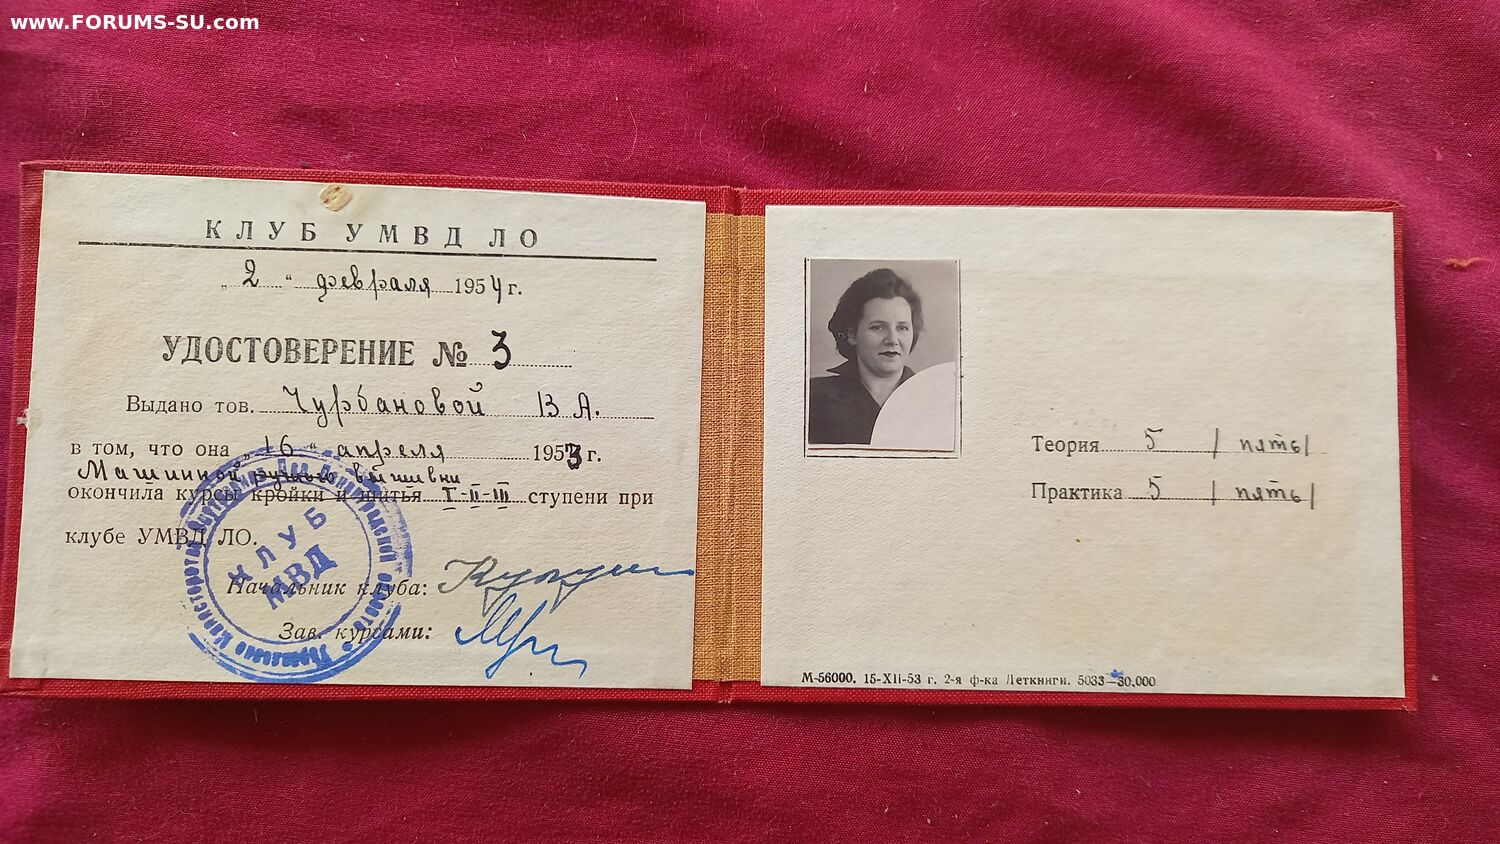 www.FORUMS-SU.com
КЛУБ УМВД ЛО
„2“ февраля 1954 г.
УДОСТОВЕРЕНИЕ № 3
Выдано тов. Чурбановой В А.
в том, что она „16“ апреля 1953 г.
Машинной вышивки
окончила курсы кройки и шитья I-II-III ступени при
клубе УМВД ЛО.
КЛУБ
МВД
Начальник клуба:
Зав. курсами:
Теория 5 /пять/
Практика 5 /пять/
М-56000. 15-XII-53 г. 2-я ф-ка Леткниги. 5033—30.000